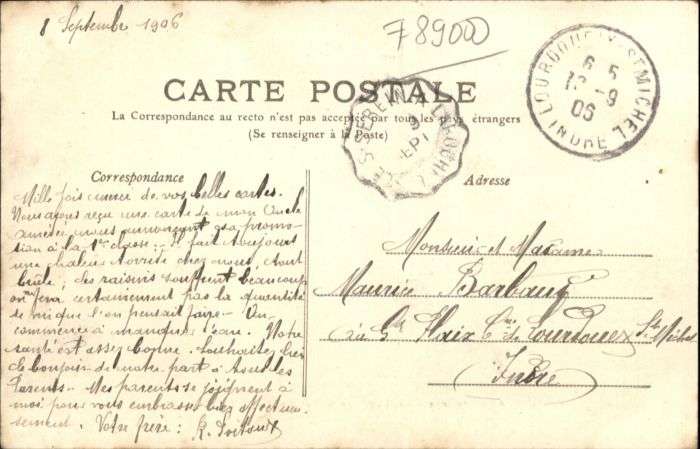 8 Septembre 1906
789000
CARTE POSTALE
La Correspondance au recto n'est pas acceptée par tous les pays étrangers
(Se renseigner à la Poste)
LOURDOUEIX-ST MICHEL
6 5
10 - 9
06
INDRE
9
SEPT
Correspondance
Adresse
Mille fois merci de vos belles cartes.
Nous avons reçu une carte de mon Oncle
nous annonçant sa promo-
sion à la 1re classe. Il fait toujours
une chaleur chez nous, tout
brûle, des raisins souffrent beaucoup
on fera certainement pas la quantité
de vin que l'on pensait faire - On
commence à manquer d'eau. Notre
santé est assez bonne. Souhaitez bien
le bonjour de notre part à tous les
Parents - Mes parents se joignent à
moi pour vous embrasser bien affectueu-
sement. Votre frère :
Monsieur et Madame
Maurice Barbaud
Cne de Lourdoueix St-
Michel
Indre